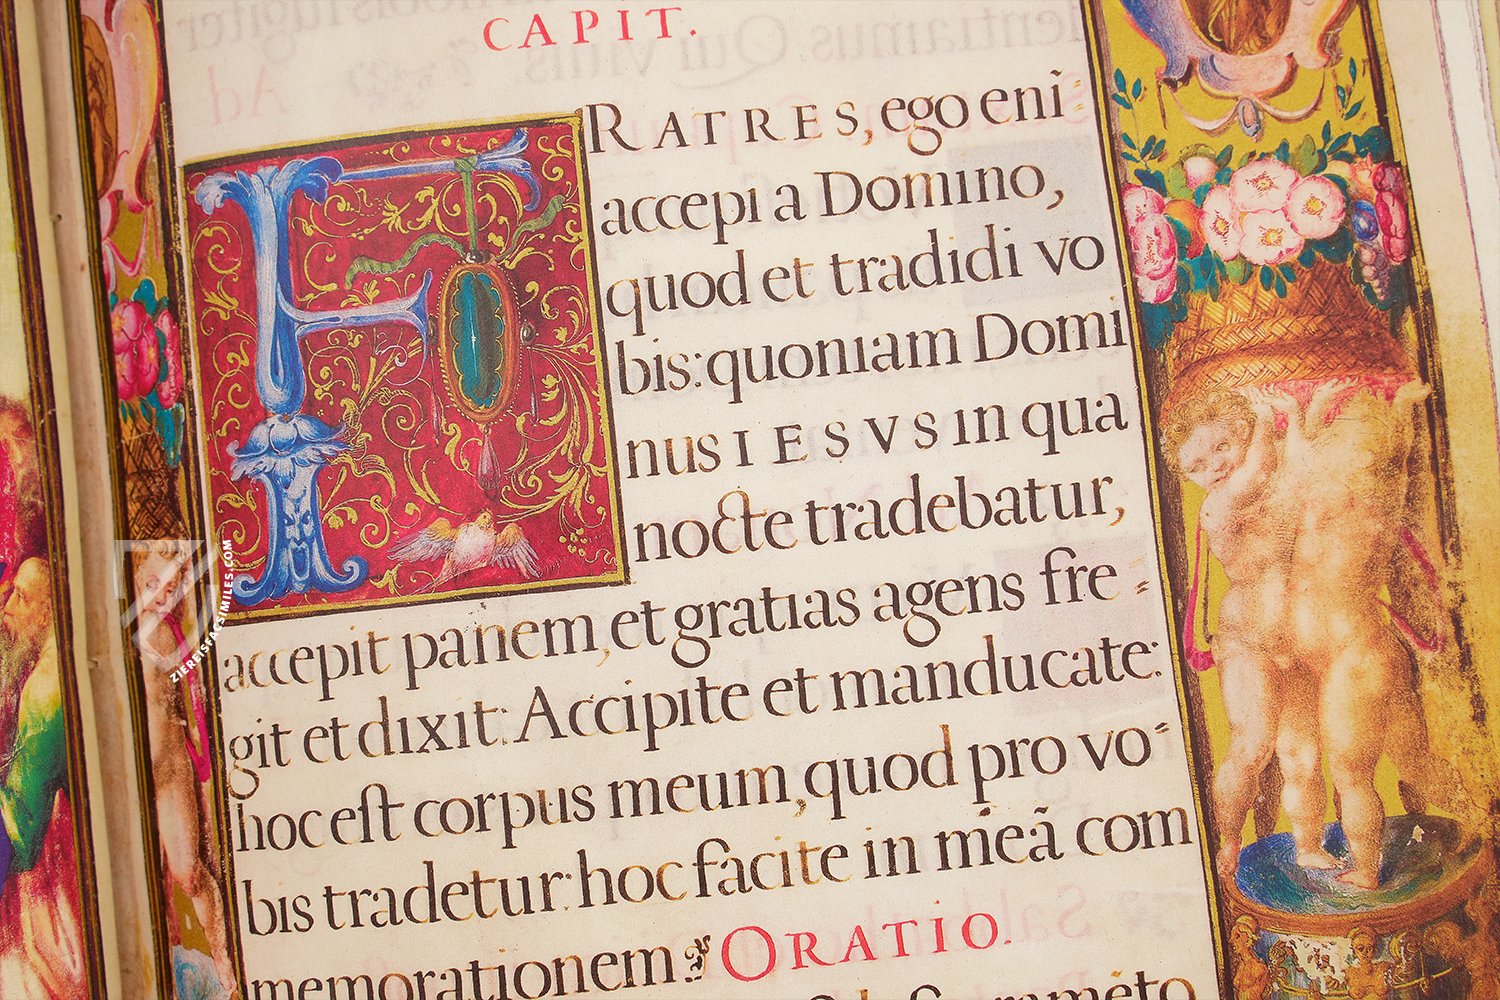 CAPIT.
FRATRES, ego eni-
accepi a Domino,
quod et tradidi vo
bis: quoniam Domi
nus IESVS in qua
nocte tradebatur,
accepit panem, et gratias agens fre-
git et dixit: Accipite et manducate:
hoc est corpus meum, quod pro vo-
bis tradetur: hoc facite in meã com
memorationem. ORATIO.
ZIEREISFACSIMILES.COM